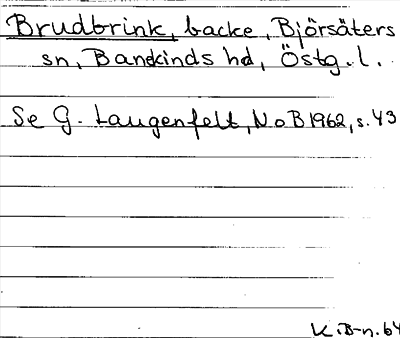 Brudbrink, backe, Björsäters
sn, Bankekinds hd, Östg. l.
Se G. Langenfelt, NoB 1962, s. 43
K. B-n. 64